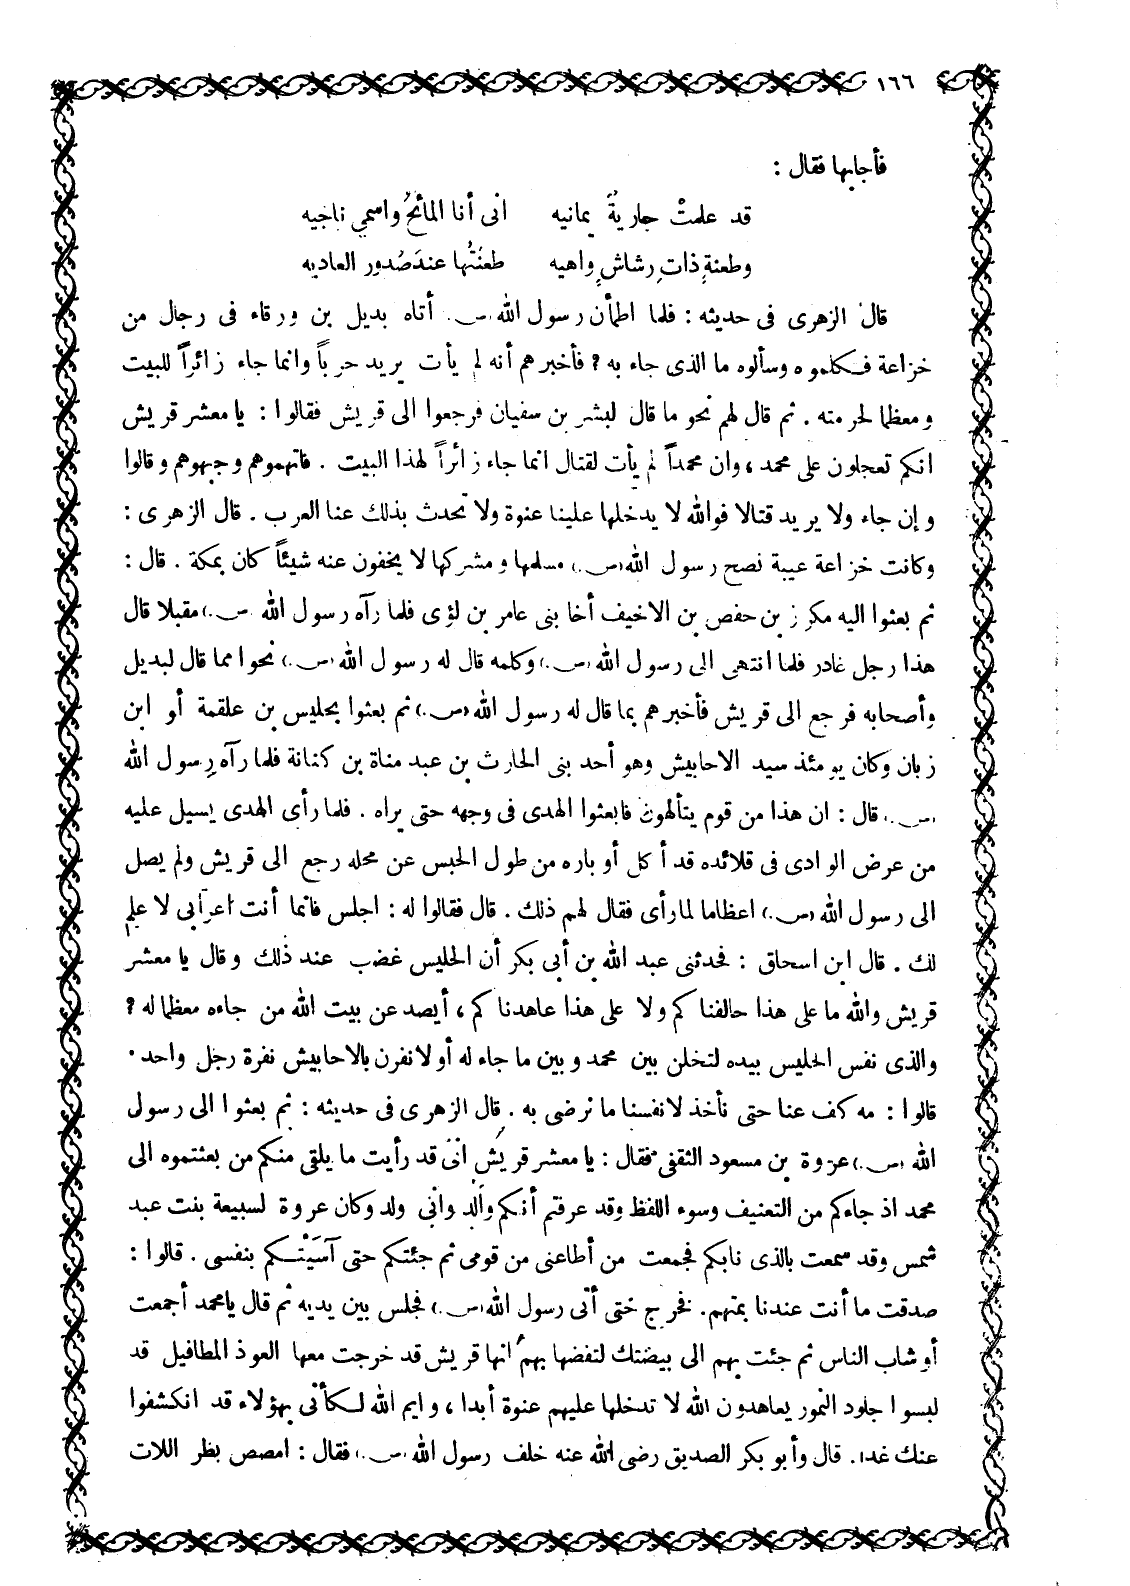 ١٦٦
فأجابها فقال :
قد علمتْ جاريةٌ يمانيه انى أنا المائحُ واسمي ناجيه
وطعنةٍ ذاتِ رشاشٍ واهيه طعنتُها عندَ صُدور العاديه
قال الزهرى فى حديثه : فلما اطمأن رسول الله (ص.) أتاه بديل بن ورقاء فى رجال من
خزاعة فكلموه وسألوه ما الذى جاء به ? فأخبرهم أنه لم يأت يريد حرباً وانما جاء زائراً للبيت
ومعظما لحرمته . ثم قال لهم نحو ما قال لبشر بن سفيان فرجعوا الى قريش فقالوا : يا معشر قريش
انكم تعجلون على محمد ، وان محمداً لم يأت لقتال انما جاء زائراً لهذا البيت . فاتهموهم وجبهوهم وقالوا
وإن جاء ولا يريد قتالا فوالله لا يدخلها علينا عنوة ولا تحدث بذلك عنا العرب . قال الزهرى :
وكانت خزاعة عيبة نصح رسول الله (ص.) مسلمها ومشركها لا يخفون عنه شيئاً كان بمكة . قال :
ثم بعثوا اليه مكرز بن حفص بن الاخيف أخا بنى عامر بن لؤى فلما رآه رسول الله (ص.) مقبلا قال
هذا رجل غادر فلما انتهى الى رسول الله (ص.) وكلمه قال له رسول الله (ص.) نحوا مما قال لبديل
وأصحابه فرجع الى قريش فأخبرهم بما قال له رسول الله (ص.) ثم بعثوا بحليس بن علقمة أو ابن
زبان وكان يومئذ سيد الاحابيش وهو أحد بنى الحارث بن عبد مناة بن كنانة فلما رآه رسول الله
(ص.) قال : ان هذا من قوم يتألهون فابعثوا الهدى فى وجهه حتى يراه . فلما رأى الهدى يسيل عليه
من عرض الوادى فى قلائده قد أكل أوباره من طول الحبس عن محله رجع الى قريش ولم يصل
الى رسول الله (ص.) اعظاما لما رأى فقال لهم ذلك . قال فقالوا له : اجلس فانما أنت اعرابى لا علم
لك . قال ابن اسحاق : فحدثنى عبد الله بن أبى بكر أن الحليس غضب عند ذلك وقال يا معشر
قريش والله ما على هذا حالفناكم ولا على هذا عاهدناكم ، أيصد عن بيت الله من جاءه معظما له ?
والذى نفس الحليس بيده لتخلن بين محمد وبين ما جاء له أو لانفرن بالاحابيش نفرة رجل واحد .
قالوا : مه كف عنا حتى نأخذ لانفسنا ما نرضى به . قال الزهرى فى حديثه : ثم بعثوا الى رسول
الله (ص.) عروة بن مسعود الثقفى فقال : يا معشر قريش انى قد رأيت ما يلقى منكم من بعثتموه الى
محمد اذ جاءكم من التعنيف وسوء اللفظ وقد عرفتم أنكم والد وانى ولد وكان عروة لسبيعة بنت عبد
شمس وقد سمعت بالذى نابكم فجمعت من أطاعنى من قومى ثم جئتكم حتى آسَيْتكم بنفسى . قالوا :
صدقت ما أنت عندنا بمتهم. فخرج حتى أتى رسول الله (ص.) فجلس بين يديه ثم قال يا محمد أجمعت
أوشاب الناس ثم جئت بهم الى بيضتك لتفضها بهم انها قريش قد خرجت معها العوذ المطافيل قد
لبسوا جلود النمور يعاهدون الله لا تدخلها عليهم عنوة أبدا ، وايم الله لكأنى بهؤلاء قد انكشفوا
عنك غدا. قال وأبو بكر الصديق رضى الله عنه خلف رسول الله (ص.) فقال : امصص بظر اللات